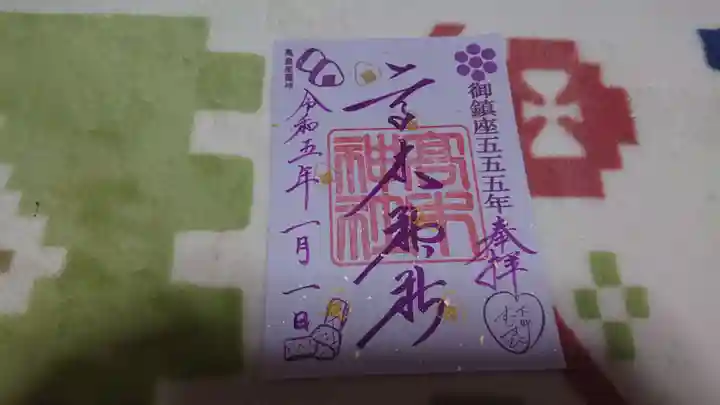 御鎮座五五五年
奉拝
下町
むすび
高木神社
高木神社
令和五年一月一日